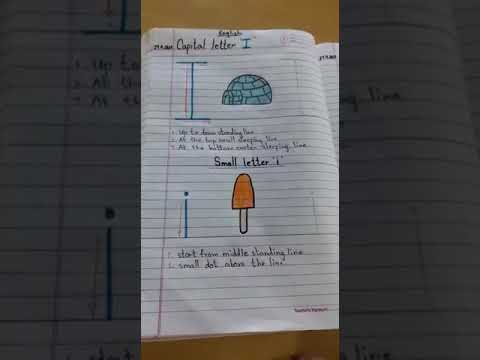 English
Capital letter "I"
I
1. Up to down standing line
2. At the top small sleeping line
3. At the bottom sleeping line
Small letter "i"
i
1. start from middle standing line
2. small dot above the line
Teacher's Signature